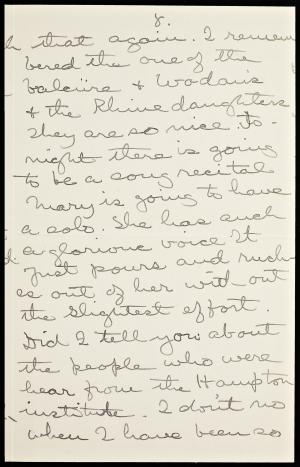 8.
that again. I remem
bered the one of the
Valcüre & Wodan's
& the Rhine daughters
they are so nice. To-
night there is going
to be a song recital
Mary is going to have
a solo. She has such
a glorious voice It
Just pours and rush-
es out of her with-out
the slightest effort.
Did I tell you about
the people who were
hear from the Hampton
institute. I don't no
when I have been so